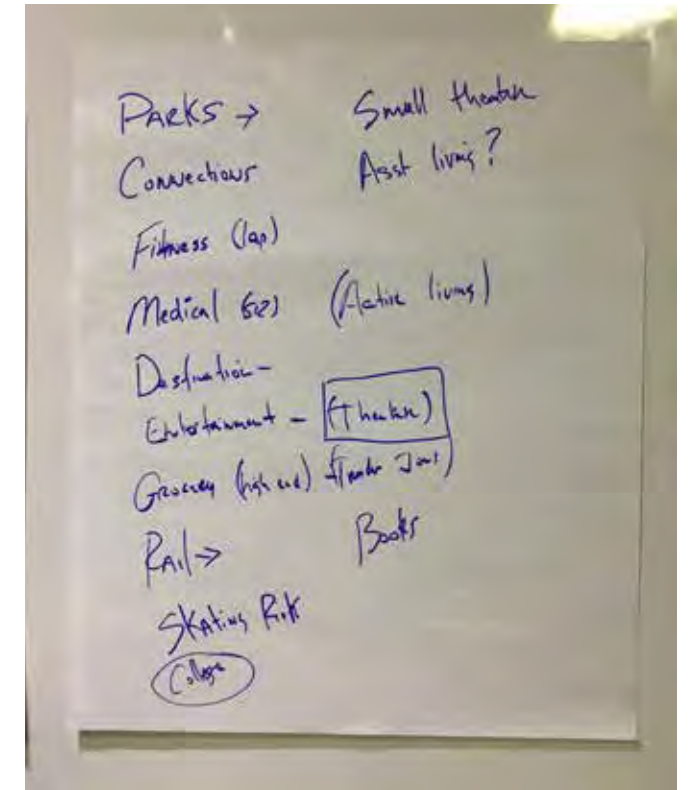 PARKS → Small theatre
Connections Asst living?
Fitness (lap)
Medical (Active living)
Destination -
Entertainment - (Theatre)
Grocery (high end) (Trader Joes)
RAil → Books
SKAting RiNK
College